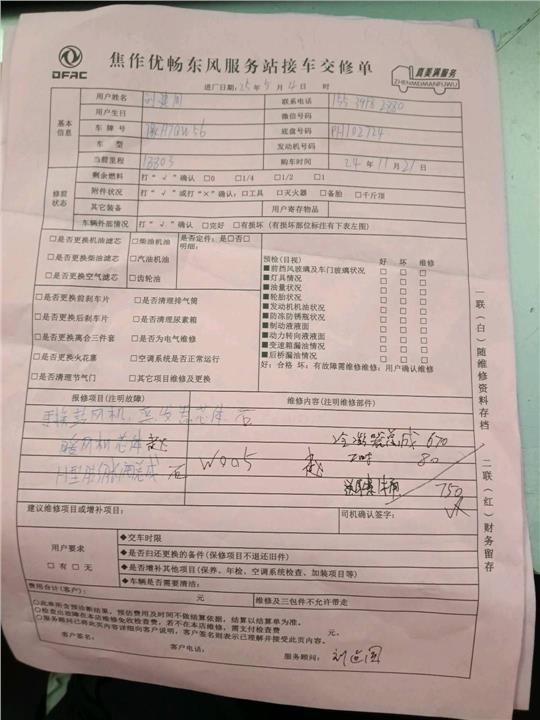 DFAC
焦作优畅东风服务站接车交修单
真美满服务
ZHENMEIMANFUWU
进厂日期: 25 年 5 月 4 日 时
基本信息
用户姓名 联系电话
用户生日 微信号码
车牌号 底盘号码 PH102724
车型 发动机号码
当前里程 13303 购车时间 24年11月21日
修前状态
剩余燃料 打“√”确认 □0 □1/4 □1/2 □1
附件状况 打“√”或打“×”确认: □工具 □灭火器 □备胎 □千斤顶
其它装备 用户寄存物品
车辆外部情况 打“√”确认 □完好 □有损坏 (有损坏部位标注有下表左图)
□是否更换机油滤芯 □柴油机油 是否定件: 是□否□
□是否更换柴油滤芯 □汽油机油 明细:
□是否更换空气滤芯 □齿轮油
□是否更换前刹车片 □是否清理排气筒
□是否更换后刹车片 □是否清理尿素箱
□是否更换离合三件套 □是否为电气维修
□是否更换火花塞 □空调系统是否正常运行
□是否清理节气门 □其它项目维修及更换
预检(目视) 好 坏 维修
■前挡风玻璃及车门玻璃状况 □ □ □
■灯具情况 □ □ □
■油量状况 □ □ □
■轮胎状况 □ □ □
■发动机机油状况 □ □ □
■防冻防锈瓶状况 □ □ □
■制动液液面 □ □ □
■动力转向液液面 □ □ □
■变速箱漏油情况 □ □ □
■后桥漏油情况 □ □ □
好: 合格 坏: 有故障需维修维修: 用户确认维修
报修项目(注明故障) 维修内容(注明维修部件)
鼓风机 蒸发器芯体 否
暖风机芯体
W005
冷凝器总成 670
工时 80
750
建议维修项目或增补项目: 司机确认签字:
用户要求
□有 □无
◆交车时限
◆是否归还更换的备件(保修项目不退还旧件)
◆是否增补其他项目(保养、年检、空调系统检查、加装项目等)
◆车辆是否需要清洁:
费用合计(客户): 元 维修及三包件不允许带走
○此单所含预诊断结果, 预估费用及时间不做结算依据, 结算以结算单为准。
○检查出故障在本店维修免收检查费, 若不在本店维修, 需支付检查费 元。
○服务顾问已将此页内容详细向客户说明, 客户签名则表示已理解并接受此页内容。
客户签名: 客户电话: 服务顾问:
一联(白)随维修资料存档
二联(红)财务留存